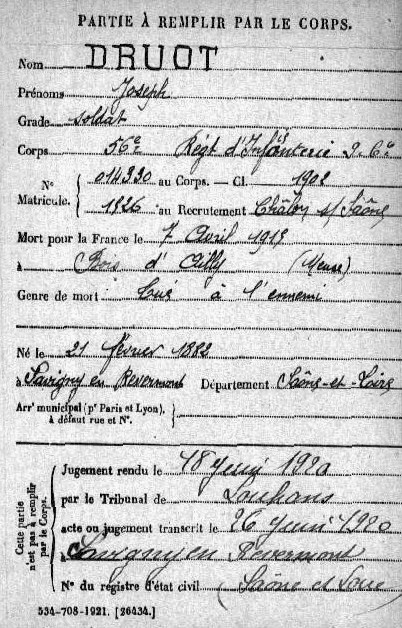 PARTIE À REMPLIR PAR LE CORPS.
Nom DRUOT
Prénoms Joseph
Grade soldat
Corps 56e Régt d'Infanterie
N° Matricule. { 014330 au Corps. — Cl. 1902
1326 au Recrutement Châlon s/ Saône
Mort pour la France le 7 Avril 1915
à Bois d'Ailly (Meuse)
Genre de mort Tué à l'ennemi
Né le 21 février 1882
à Savigny en Revermont Département Saône-et-Loire
Arrt municipal (pr Paris et Lyon), à défaut rue et N°. }
Cette partie n'est pas à remplir par le Corps. {
Jugement rendu le 18 Juin 1920
par le Tribunal de Louhans
acte ou jugement transcrit le 26 Juin 1920
à Savigny en Revermont
N° du registre d'état civil (Saône et Loire
534-708-1921. [26434.]